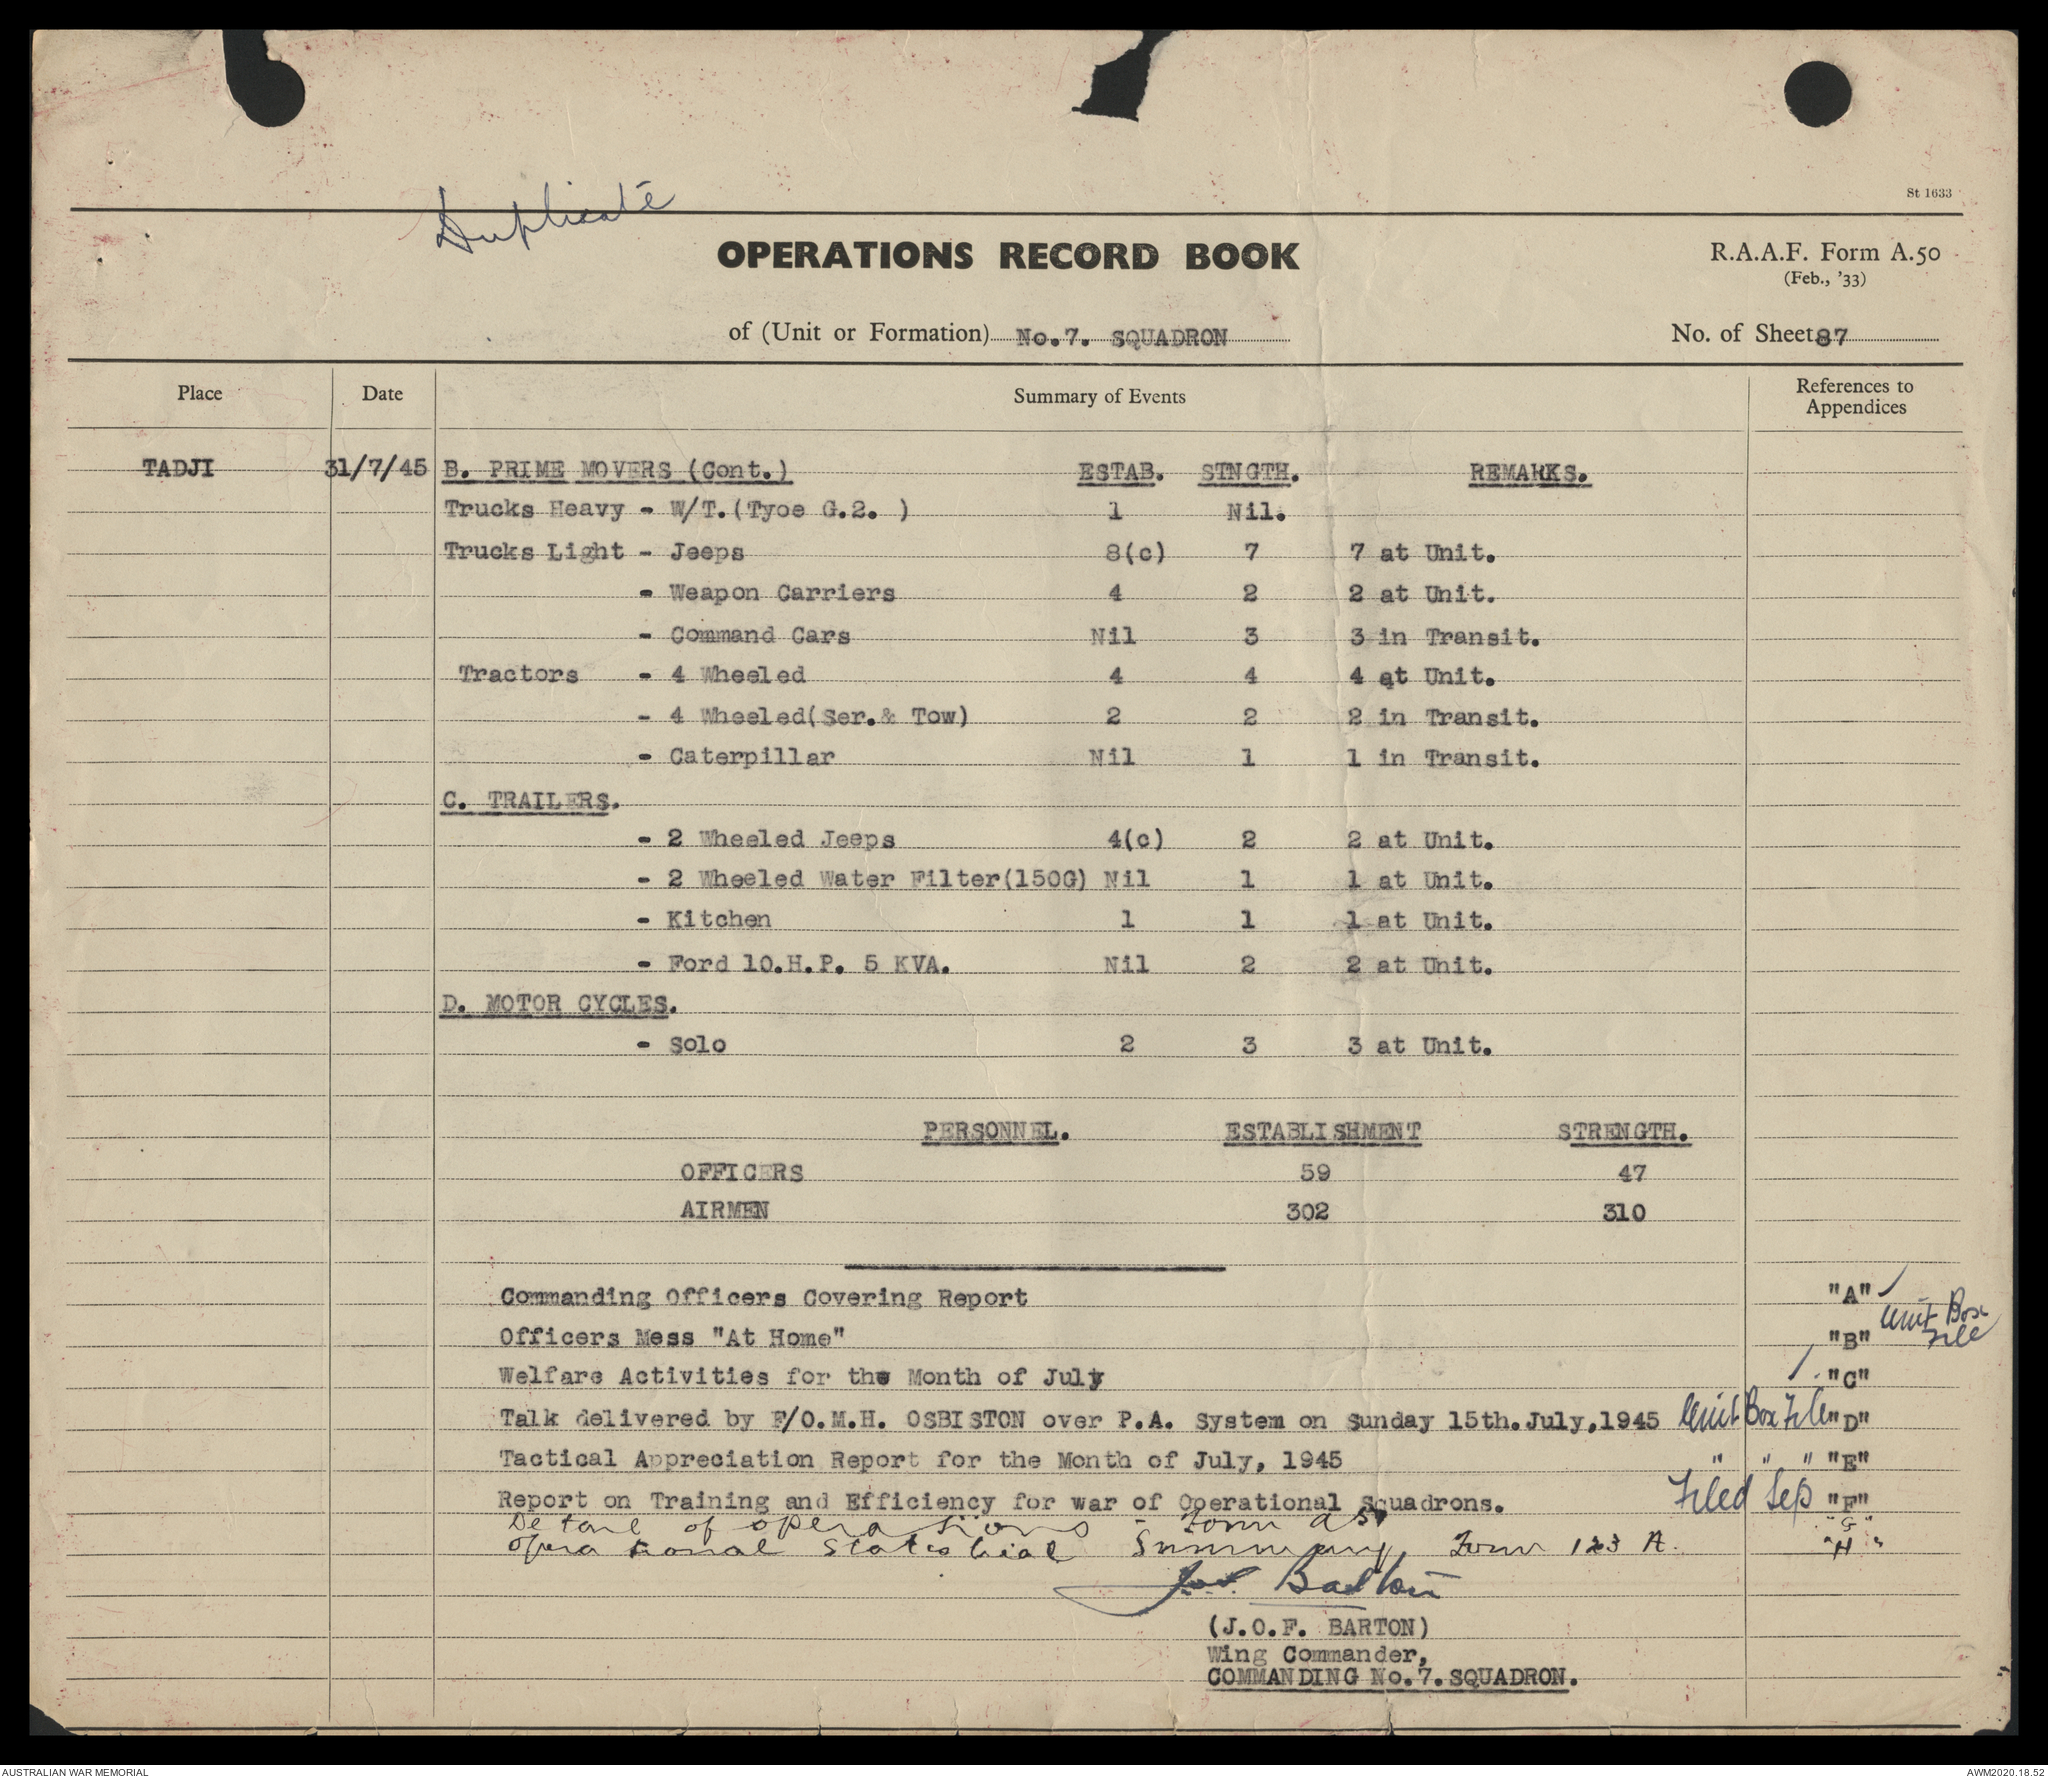 Duplicate
St 1633
OPERATIONS RECORD BOOK
R.A.A.F. Form A.50
(Feb., '33)
of (Unit or Formation) No.7. SQUADRON
No. of Sheet 87
Place Date Summary of Events References to Appendices
TADJI 31/7/45 B. PRIME MOVERS (Cont.) ESTAB. STNGTH. REMARKS.
Trucks Heavy - W/T.(Tyoe G.2. ) 1 Nil.
Trucks Light - Jeeps 8(c) 7 7 at Unit.
- Weapon Carriers 4 2 2 at Unit.
- Command Cars Nil 3 3 in Transit.
Tractors - 4 Wheeled 4 4 4 at Unit.
- 4 Wheeled(Ser.& Tow) 2 2 2 in Transit.
- Caterpillar Nil 1 1 in Transit.
C. TRAILERS.
- 2 Wheeled Jeeps 4(c) 2 2 at Unit.
- 2 Wheeled Water Filter(150G) Nil 1 1 at Unit.
- Kitchen 1 1 1 at Unit.
- Ford 10.H.P. 5 KVA. Nil 2 2 at Unit.
D. MOTOR CYCLES.
- Solo 2 3 3 at Unit.
PERSONNEL. ESTABLISHMENT STRENGTH.
OFFICERS 59 47
AIRMEN 302 310
Commanding Officers Covering Report "A"
Unit Box File
Officers Mess "At Home" "B"
Welfare Activities for the Month of July "C"
Talk delivered by F/O.M.H. OSBISTON over P.A. System on Sunday 15th.July,1945 Unit Box File "D"
Tactical Appreciation Report for the Month of July, 1945 " " " "E"
Report on Training and Efficiency for war of Operational Squadrons. Filed Sep "F"
Detail of operations - Form A51 "G"
Operational Statistical Summary, Form 123 A. "H"
J.O.F. Barton
(J.O.F. BARTON)
Wing Commander,
COMMANDING No.7.SQUADRON.
AUSTRALIAN WAR MEMORIAL
AWM2020.18.52